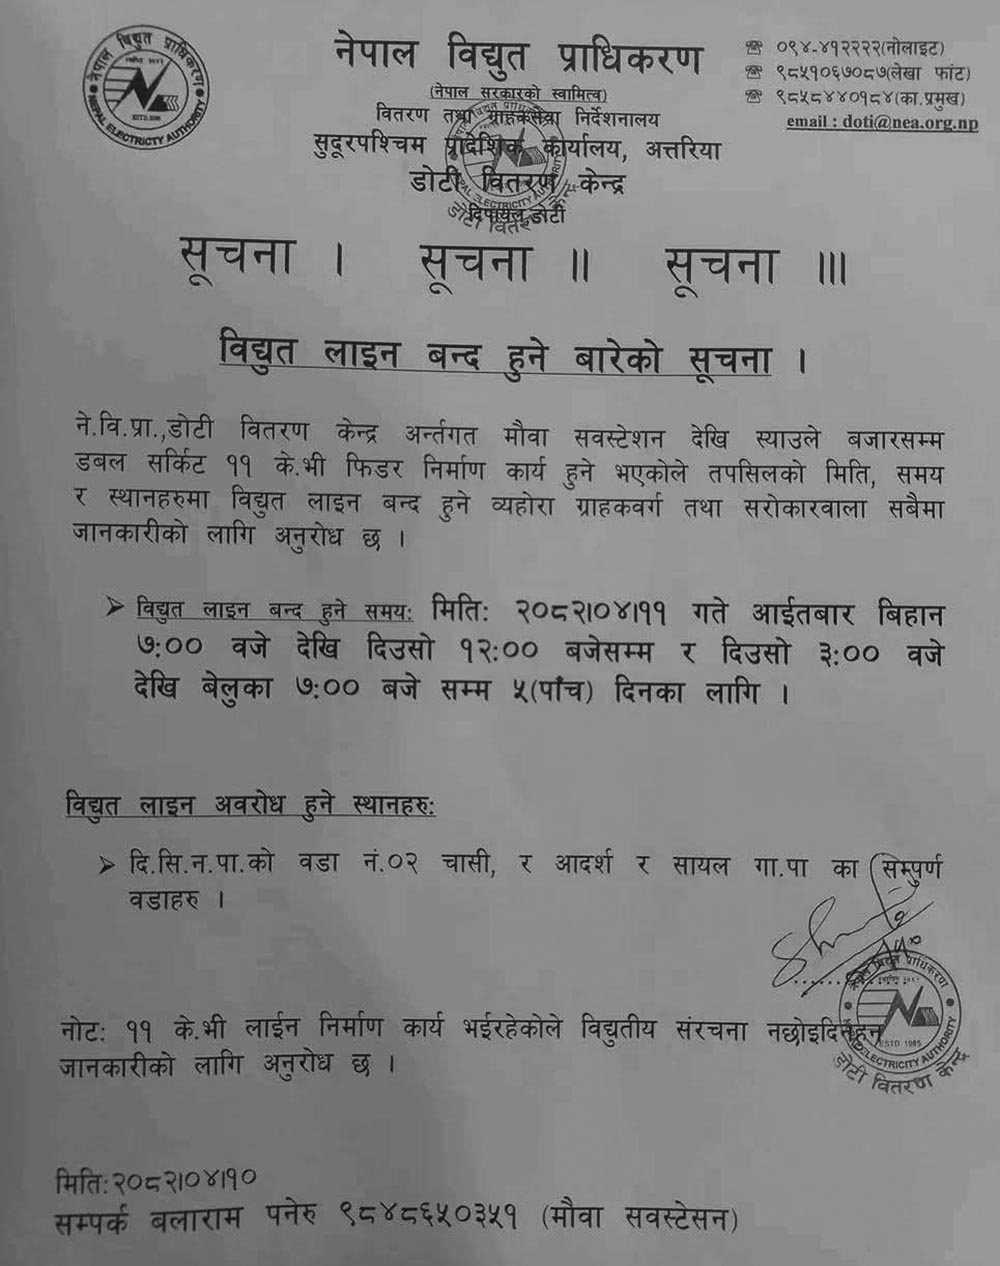 नेपाल विद्युत प्राधिकरण
(नेपाल सरकारको स्वामित्व)
वितरण तथा ग्राहकसेवा निर्देशनालय
सुदूरपश्चिम प्रादेशिक कार्यालय, अत्तरिया
डोटी वितरण केन्द्र
दिपायल,डोटी
☏ ०९४-४१२२२२(नोलाइट)
☏ ९८५१०६७०८७(लेखा फांट)
☏ ९८५८४४०१८४(का.प्रमुख)
email : doti@nea.org.np
सूचना । सूचना ॥ सूचना ॥।
विद्युत लाइन बन्द हुने बारेको सूचना ।
ने.वि.प्रा.,डोटी वितरण केन्द्र अर्न्तगत मौवा सवस्टेशन देखि स्याउले बजारसम्म
डबल सर्किट ११ के.भी फिडर निर्माण कार्य हुने भएकोले तपसिलको मिति, समय
र स्थानहरुमा विद्युत लाइन बन्द हुने व्यहोरा ग्राहकवर्ग तथा सरोकारवाला सबैमा
जानकारीको लागि अनुरोध छ ।
➢ विद्युत लाइन बन्द हुने समय: मिति: २०८२।०४।११ गते आईतबार बिहान
७:०० वजे देखि दिउसो १२:०० बजेसम्म र दिउसो ३:०० वजे
देखि बेलुका ७:०० बजे सम्म ५(पांच) दिनका लागि ।
विद्युत लाइन अवरोध हुने स्थानहरु:
➢ दि.सि.न.पा.को वडा नं.०२ चासी, र आदर्श र सायल गा.पा का सम्पुर्ण
वडाहरु ।
नेपाल विद्युत प्राधिकरण
NEPAL ELECTRICITY AUTHORITY
ESTD 1985
डोटी वितरण केन्द्र
नोट: ११ के.भी लाईन निर्माण कार्य भईरहेकोले विद्युतीय संरचना नछोइदिनुहुन
जानकारीको लागि अनुरोध छ ।
मिति:२०८२।०४।१०
सम्पर्क बलाराम पनेरु ९८४८६५०३५१ (मौवा सवस्टेसन)